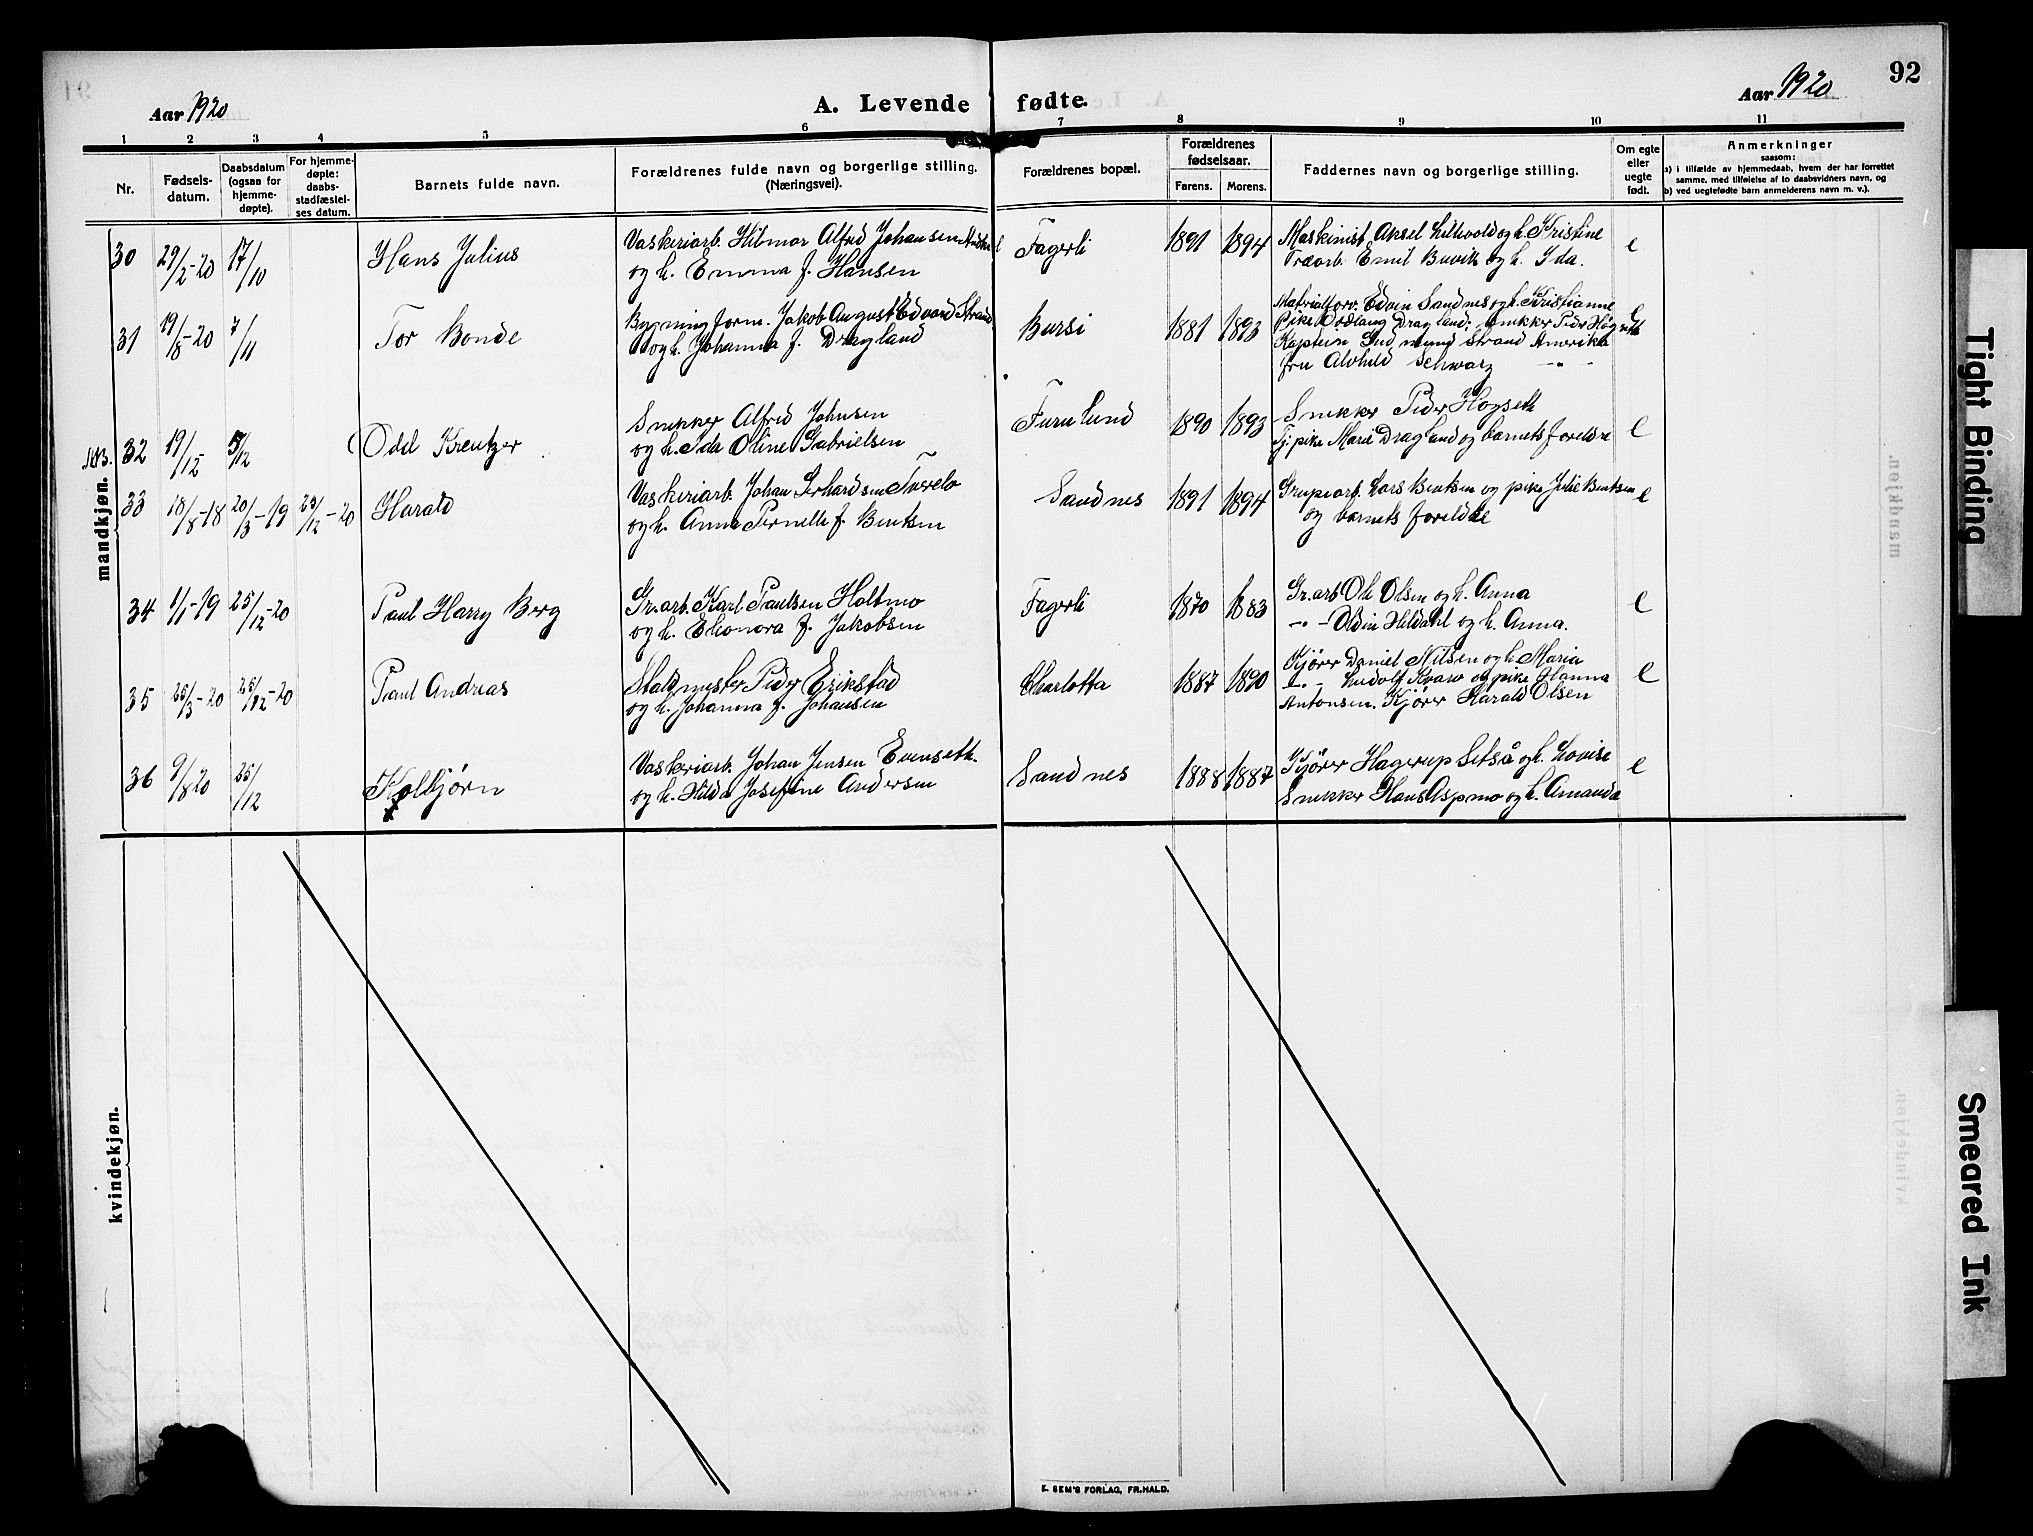 92
Aar 1920
A. Levende fødte.
Aar 1920
1 2 3 4 5 6 7 8 9 10 11
Nr.
Fødsels-
datum.
Daabsdatum
(ogsaa for
hjemme-
døpte).
For hjemme-
døpte:
daabs-
stadfæstel-
ses datum.
Barnets fulde navn.
Forældrenes fulde navn og borgerlige stilling.
(Næringsvei).
Forældrenes bopæl.
Forældrenes
fødselsaar.
Farens. Morens.
Faddernes navn og borgerlige stilling.
Om egte
eller
uegte
født.
Anmerkninger
saasom:
a) i tilfælde av hjemmedaab, hvem der har forrettet
samme, med tilføielse af to daabsvidners navn, og
b) ved uegtefødte barn anmelderens navn m. v.).
mandkjøn.
30 29/2-20 17/10 Hans Julius
Vaskeriarb. Hilmar Alfred Johansen
og h. Emma f. Hansen
Fagerli 1891 1894
Maskinist Aksel Lillevold og h. Kristine
Træarb. Emil Buvik og h. Ida.
e
31 19/8-20 7/11 Tor Bonde
Bygningform. Jakob August Edvard Strand
og h. Johanna f. Dragland
Bursi 1881 1893
Matrialforv. Edvin Sandnes og h. Kristianne
Pike Dodlaug Dragland; Snekker Peder Høgseth
Kaptein Gudmund Strand Amerika
fru Alvhild Schwarz -"-
e
NB. 32 19/12 5/12 Odd Kreutzer
Snekker Alfred Johnsen
og h. Ida Oline Gabrielsen
Furulund 1890 1893
Snekker Peder Hogseth
Tj. pike Marie Dragland og barnets foreldre
e
33 18/8-18 20/3-19 25/12-20 Harald
Vaskeriarb. Johan Gerhardsen Tverelv
og h. Anna Pernelle f. Bentsen
Sandnes 1891 1894
Grubearb. Lars Bentsen og pike Julie Bentsen
og barnets foreldre
e
34 1/1-19 25/12-20 Paul Harry Berg
Gr.arb. Karl Paulsen Holtmo
og h. Elionora f. Jakobsen
Fagerli 1870 1883
Gr.arb Ole Olsen og h. Anna
-"- Oldin Hildahl og h. Anna.
e
35 25/3-20 25/12-20 Paul Andreas
Staldmester Peder Erikstad
og h. Johanna f. Johansen
Charlotta 1887 1890
Kjører Daniel Nilsen og h. Maria
-"- Ludolf Kvarv og pike Hanna
Antonsen. Kjører Harald Olsen
e
36 9/8 20 25/12 Kolbjørn
Vaskeriarb. Johan Jensen Evenseth.
og h. Hilda Josefine Andersen
Sandnes 1888 1887
Kjører Hagerup Setså og h. Lovise
Snekker Hans Aspmo og h. Amanda
e
kvindekjøn.
E. SEM'S FORLAG, FR.HALD.
Tight Binding
Smeared Ink